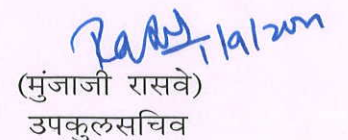 1/9/2011
(मुंजाजी रासवे)
उपकुलसचिव